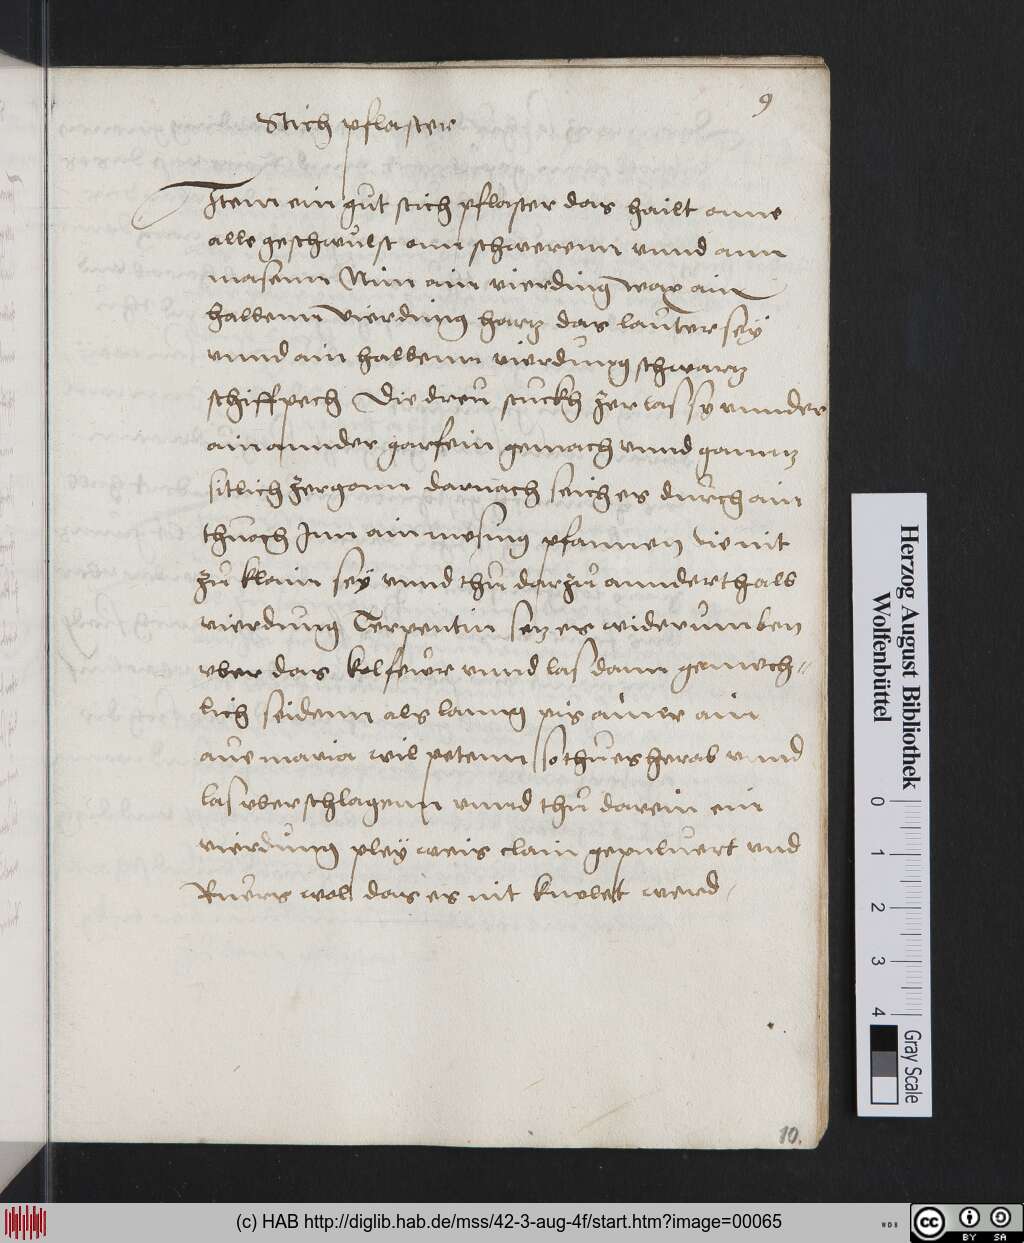 9
Stich pflaster
Item ein gut stich pflaster das hailt onne
alle geschwulst onn schwerenn unnd ann
masenn Nim ain vierding wax ain
halbenn vierding hartz das lauter seÿ
unnd ain halbenn vierdung schwartz
schiffpech Die dreu stuckh zerlas sy unnder
ain annder gar fein gemach unnd ganntz
sitlich zergann darnach seich es durch ain
thuech Inn ain mesing pfannen die nit
zu klain seÿ unnd thu darzu annderthalb
vierdung Terpentin setz es widerumben
vber das kolfewr unnd las dann gemech-
lich seidenn als lanng pis ainer ain
ave maria wil petenn so thu es herab unnd
las vberschlagenn unnd thu darein ein
vierdung pleÿ weis clain gepulvert und
Ruers wol das es nit knolet werd
10.
Herzog August Bibliothek
Wolfenbüttel
0 1 2 3 4
Gray Scale
(c) HAB http://diglib.hab.de/mss/42-3-aug-4f/start.htm?image=00065
WDB
cc BY SA